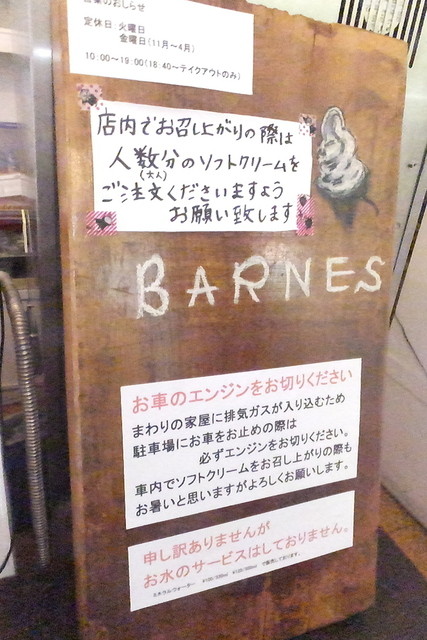 営業のおしらせ
定休日:火曜日
金曜日(11月～4月)
10:00～19:00(18:40～テイクアウトのみ)
店内でお召し上がりの際は
人数分のソフトクリームを
(大人)
ご注文くださいますよう
お願い致します
BARNES
お車のエンジンをお切りください
まわりの家屋に排気ガスが入り込むため
駐車場にお車をお止めの際は
必ずエンジンをお切りください。
車内でソフトクリームをお召し上がりの際も
お暑いと思いますがよろしくお願いします。
申し訳ありませんが
お水のサービスはしておりません。
ミネラルウォーター
で販売しております。